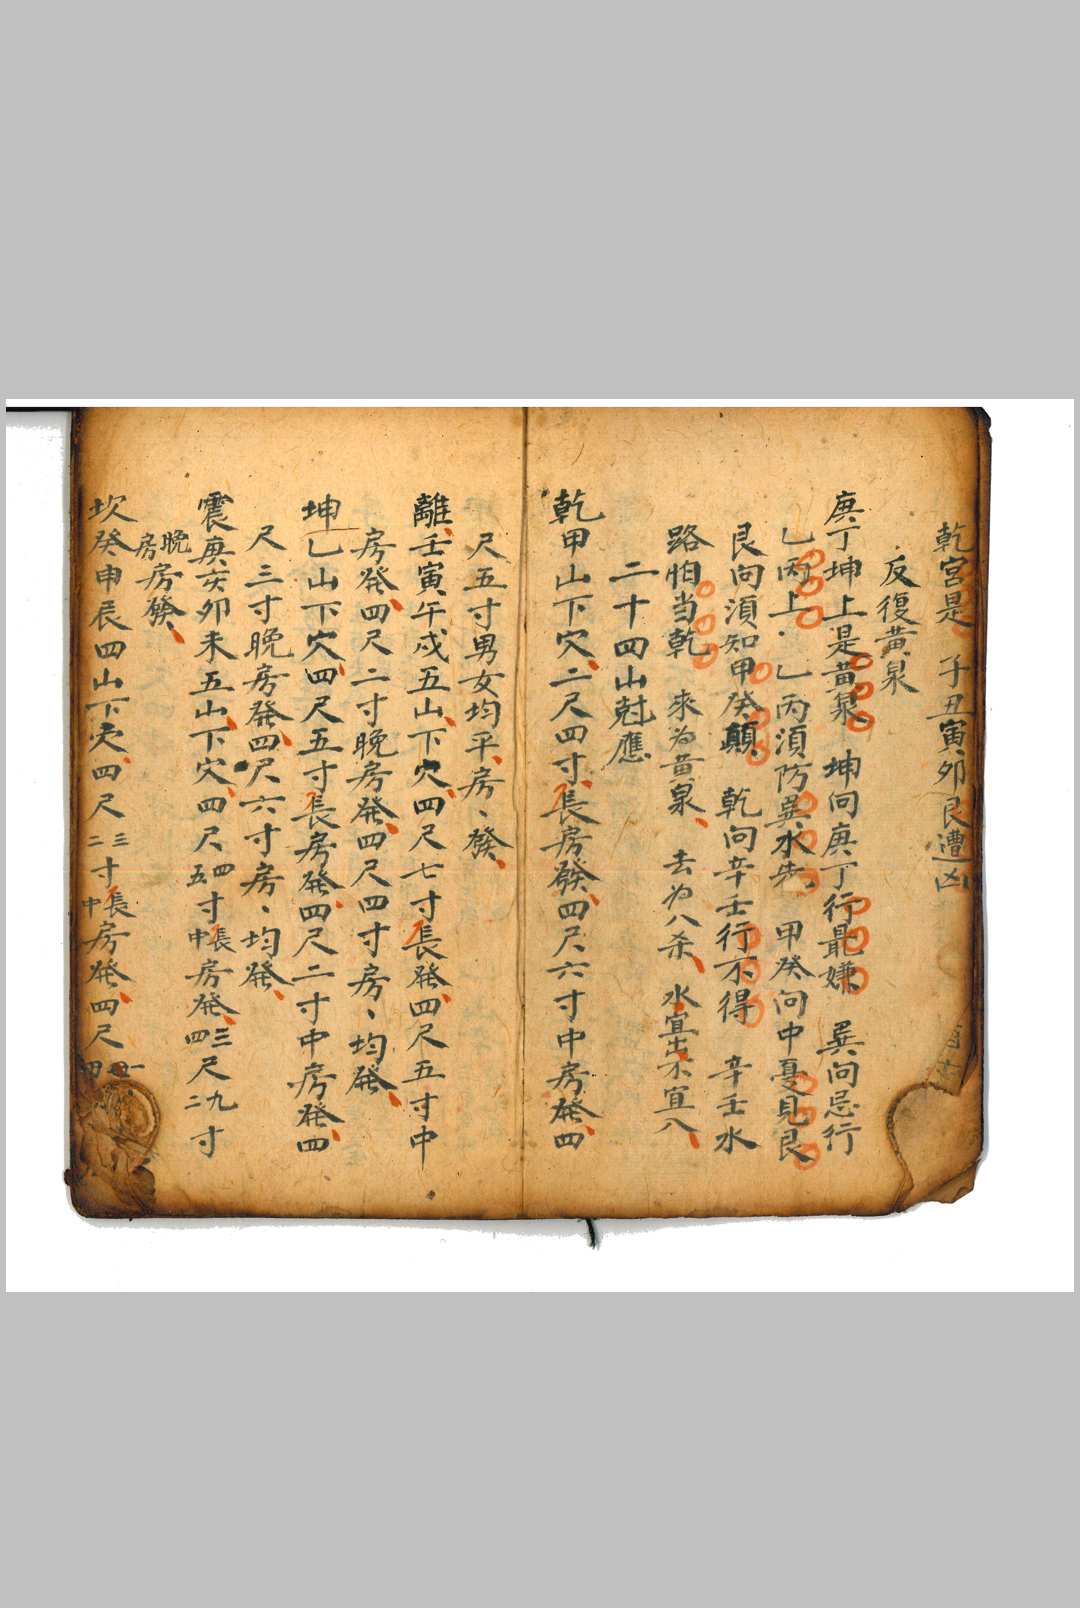 乾宮是 子丑寅卯艮遭凶
反復黃泉
庚丁坤上是黃泉 坤向庚丁行最嫌 巽向忌行
乙丙上 乙丙須防巽水先 甲癸向中憂見艮
艮向須知甲癸顛 乾向辛壬行不得 辛壬水
路怕当乾 來为黃泉 去为八杀 水宜出不宜入
二十四山尅應
乾甲山下穴二尺四寸長房發四尺六寸中房發四
尺五寸男女均平房、發
離壬寅午戌五山下穴四尺七寸長發四尺五寸中
房發四尺二寸晚房發四尺四寸房、均發
坤乙山下穴四尺五寸長房發四尺二寸中房發四
尺三寸晚房發四尺六寸房、均發
震庚亥卯未五山下穴四尺四五寸長中房發三四尺九二寸
晚房房發
坎癸申辰四山下穴四尺三二寸長中房發四尺